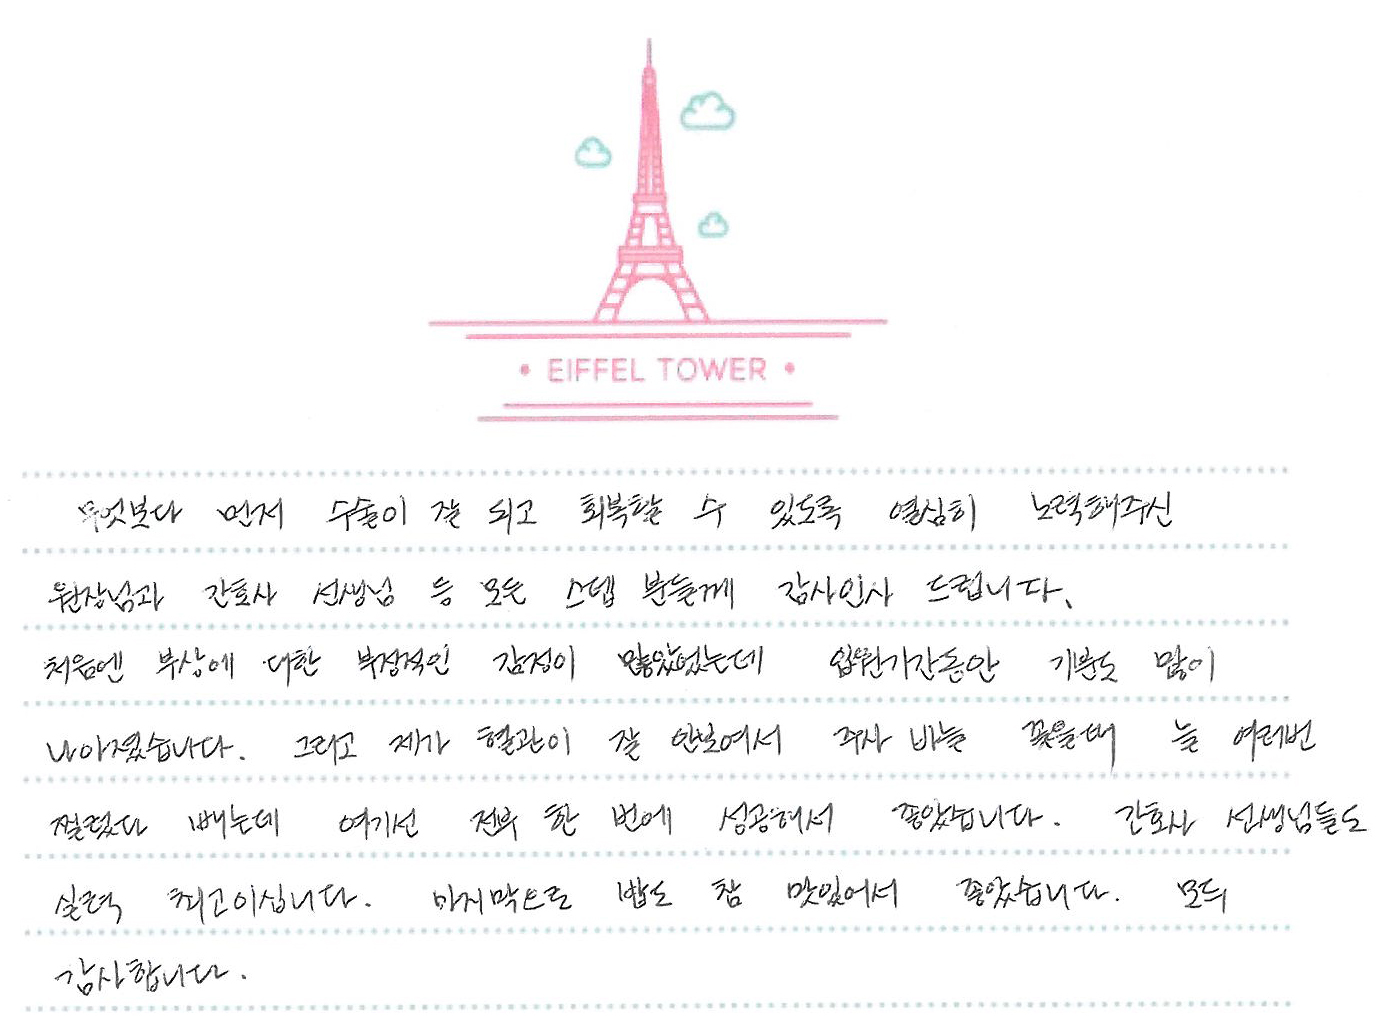 • EIFFEL TOWER •
무엇보다 먼저 수술이 잘 되고 회복할 수 있도록 열심히 노력해주신
원장님과 간호사 선생님 등 모든 스텝 분들께 감사인사 드립니다.
처음엔 부상에 대한 부정적인 감정이 많았었는데 입원기간동안 기분도 많이
나아졌습니다. 그리고 제가 혈관이 잘 안보여서 주사 바늘 꽂을때 늘 여러번
찔렀다 빼는데 여기선 전부 한 번에 성공해서 좋았습니다. 간호사 선생님들도
실력 최고이십니다. 마지막으로 밥도 참 맛있어서 좋았습니다. 모두
감사합니다.